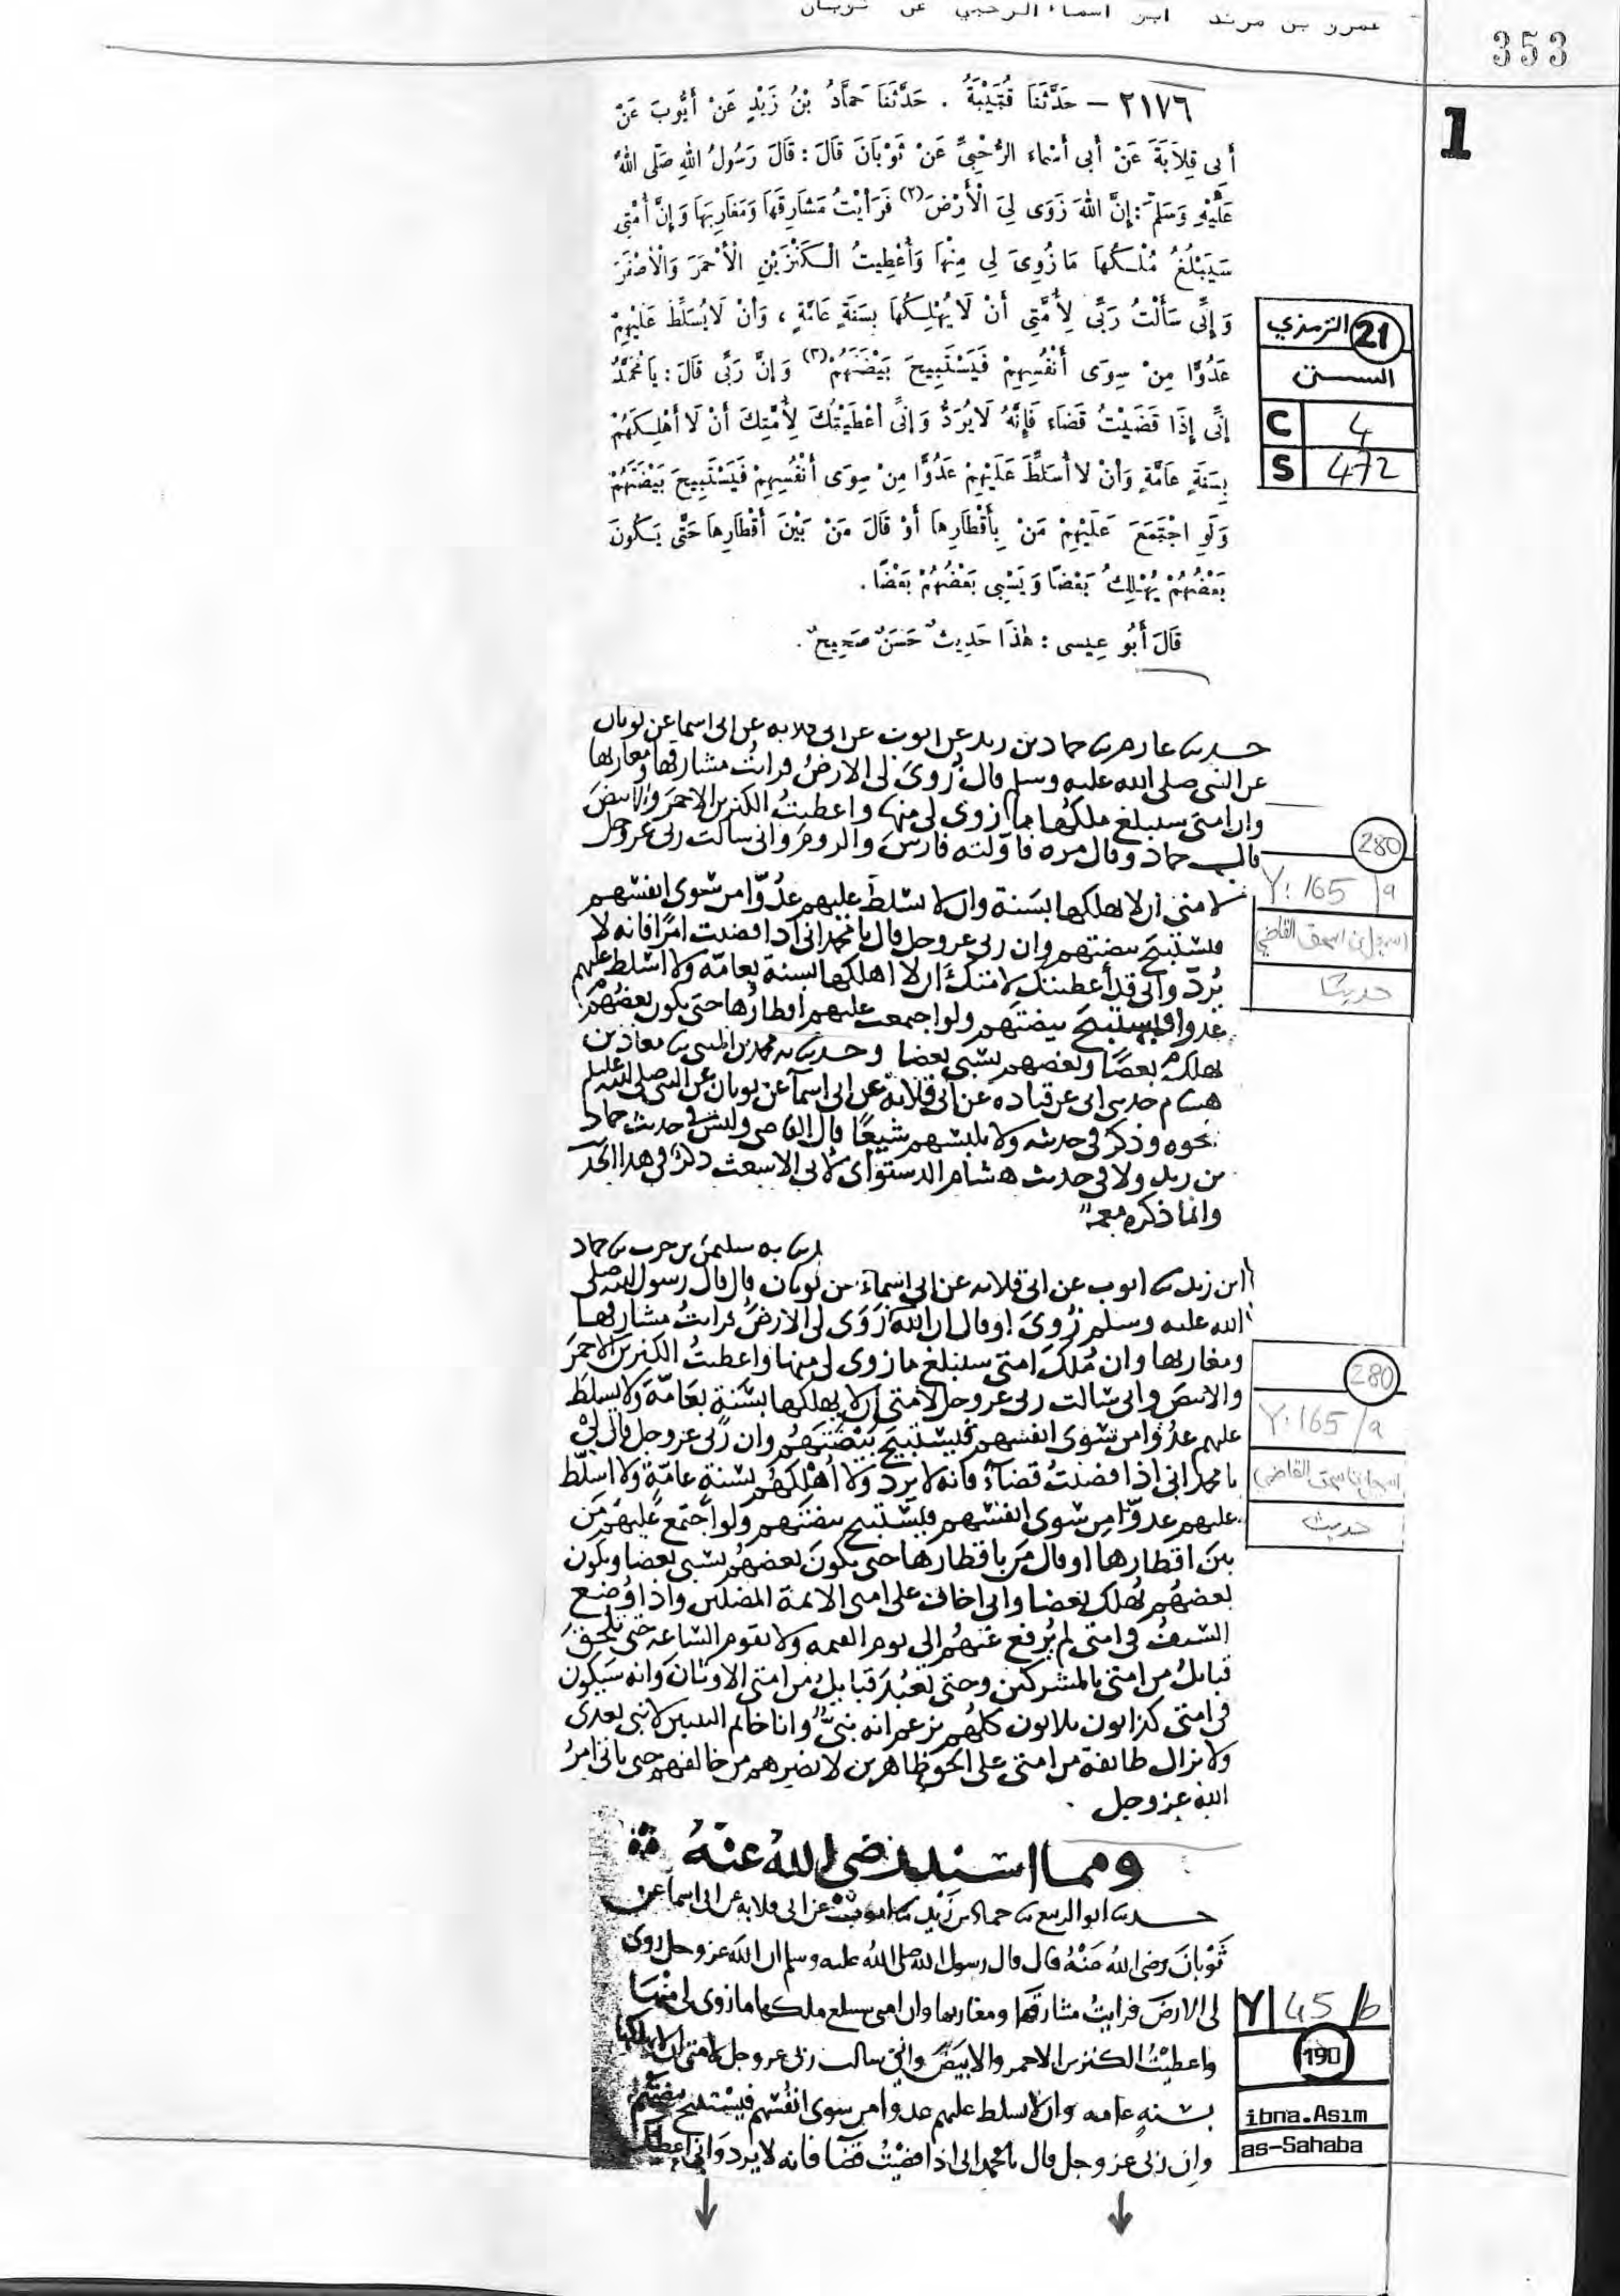 عمرو بن مرثد ابو اسماء الرحبي عن ثوبان
353
1
٢١٧٦ – حَدَّثَنَا قُتَيْبَةُ . حَدَّثَنَا حَمَّادُ بْنُ زَيْدٍ عَنْ أَيُّوبَ عَنْ
أَبِي قِلَابَةَ عَنْ أَبِي أَسْمَاءَ الرَّحْبِيِّ عَنْ ثَوْبَانَ قَالَ : قَالَ رَسُولُ اللهِ صَلَّى اللهُ
عَلَيْهِ وَسَلَّمَ : إِنَّ اللهَ زَوَى لِيَ الْأَرْضَ (٢) فَرَأَيْتُ مَشَارِقَهَا وَمَغَارِبَهَا وَإِنَّ أُمَّتِي
سَيَبْلُغُ مُلْكُهَا مَا زُوِيَ لِي مِنْهَا وَأُعْطِيتُ الْكَنْزَيْنِ الْأَحْمَرَ وَالْأَصْفَرَ
وَإِنِّي سَأَلْتُ رَبِّي لِأُمَّتِي أَنْ لَا يُهْلِكَهَا بِسَنَةٍ عَامَّةٍ ، وَأَنْ لَا يُسَلِّطَ عَلَيْهِمْ
عَدُوًّا مِنْ سِوَى أَنْفُسِهِمْ فَيَسْتَبِيحَ بَيْضَتَهُمْ (٣) وَإِنَّ رَبِّي قَالَ : يَا مُحَمَّدُ
إِنِّي إِذَا قَضَيْتُ قَضَاءً فَإِنَّهُ لَا يُرَدُّ وَإِنِّي أَعْطَيْتُكَ لِأُمَّتِكَ أَنْ لَا أُهْلِكَهُمْ
بِسَنَةٍ عَامَّةٍ وَأَنْ لَا أُسَلِّطَ عَلَيْهِمْ عَدُوًّا مِنْ سِوَى أَنْفُسِهِمْ فَيَسْتَبِيحَ بَيْضَتَهُمْ
وَلَوِ اجْتَمَعَ عَلَيْهِمْ مَنْ بِأَقْطَارِهَا أَوْ قَالَ مَنْ بَيْنَ أَقْطَارِهَا حَتَّى يَكُونَ
بَعْضُهُمْ يُهْلِكُ بَعْضًا وَيَسْبِي بَعْضُهُمْ بَعْضًا .
قَالَ أَبُو عِيسَى : هٰذَا حَدِيثٌ حَسَنٌ صَحِيحٌ .
21 الترمذي
السنن
C 4
S 472
حدثنا عارم ثنا حماد بن زيد عن ايوب عن ابي قلابه عن ابي اسما عن ثوبان
عن النبي صلى الله عليه وسلم قال زُوىَ لي الارضُ فرايتُ مشارقها ومغاربها
وان امتي سيبلغ ملكُها ما زوى لي منها واعطيتُ الكنزين الاحمرَ والابيضَ
قال حماد وقال مره فاوّلته فارسَ والرومَ واني سالت ربي عز وجل
لامتي ان لا يهلكها بسَنة وان لا يسلط عليهم عدُوّا من سِوى انفسهم
فيستبيحَ بيضتهم وان ربي عز وجل قال يا محمد اني اذا قضيت امرًا فانه لا
يُردّ واني قد أعطيتك لامتك ان لا اهلكها بسنة بعامّة ولا اسلط عليهم
عدوا فيستبيحَ بيضتَهم ولو اجمعت عليهم اقطارُها حتى يكون بعضُهم
يهلك بعضًا وبعضهم يسبي بعضا وحدثنا به محمد بن المثنى ثنا معاذ بن
هشام حدثني ابي عن قتاده عن ابي قلابة عن ابي اسما عن ثوبان عن النبي صلى الله عليه
نحوه وذكر في حديثه ولا يلبسهم شيعًا قال القاضي وليس في حديث حماد
بن زيد ولا في حديث هشام الدستواي لابي الاشعث ذكرٌ في هذا الحد
وانما ذكره معمر
280
Y: 165/a
اسمعيل بن اسحق القاضي
حديث
حدثنا به سليمن بن حرب ثنا حماد
ابن زيد ثنا ايوب عن ابي قلابه عن ابي اسماءَ عن ثوبان قال قال رسول الله صلى
الله عليه وسلم زُوىَ او قال ان اللهَ زَوَى لي الارضَ فرايتُ مشارقها
ومغاربها وان مُلكَ امتي سيبلغ ما زوى لي منها واعطيتُ الكنزين الاحمرَ
والابيضَ واني سالت ربي عز وجل لامتي ان لا يهلكها بسَنة بعَامّة ولا يسلط
عليهم عدُوّا من سوى انفسهم فيستبيحَ بَيْضَتَهم وان ربي عز وجل قال لي
يا محمد اني اذا قضيتُ قضاءً فانه لا يرد ولا أُهْلكهُم بسنةٍ عامّةٍ ولا اسلّط
عليهم عدوّا من سوى انفسهم فيستبيح بيضتَهم ولو اجتمع عليهم مَن
بينَ اقطارها او قال مَن باقطارها حتى يكونَ بعضهُم يسبي بعضا ويكون
بعضهُم يُهلك بعضا واني اخاف على امتي الائمة المضلين واذا وُضِع
السيفُ في امتي لم يُرفع عنهُم الى يوم القيمه ولا تقوم الساعه حتى تلحقَ
قبائلُ من امتي بالمشركين وحتى تعبُد قبايلُ من امتي الاوثانَ وانه سيكون
في امتي كذابون ثلاثون كلهُم يزعم انه نبيٌّ وانا خاتم النبيين لا نبي بعدي
ولا تزال طايفة من امتي على الحق ظاهرين لا يضرهم من خالفهم حتى ياتي امرُ
الله عز وجل .
280
Y: 165/a
اسمعيل بن اسحق القاضي
حديث
ومما اسند رضى الله عنه
حدثنا ابو الربيع ثنا حماد بن زَيْد ثنا ايوبُ عن ابي قلابه عن ابي اسما عن
ثَوْبانَ رضى الله عَنْهُ قال قال رسول الله صلى الله عليه وسلم ان اللهَ عز وجل زوى
لي الارضَ فرايتُ مشارقَها ومغاربها وان امتي سيبلغ ملكها ما زوى لي منها
واعطيْتُ الكنزين الاحمر والابيَضَ واني سالت ربي عز وجل لامتي ان لا يهلكها
بسَنهٍ عامه وان لا يسلط عليهم عدوا من سوى انفُسهم فيستبيح بيضتهم
وان ربي عز وجل قال يا محمد اني اذا قضيْتُ قضا فانه لا يرد واني اعطيتك
Y 45/b
190
ibn a.Asım
as-Sahaba